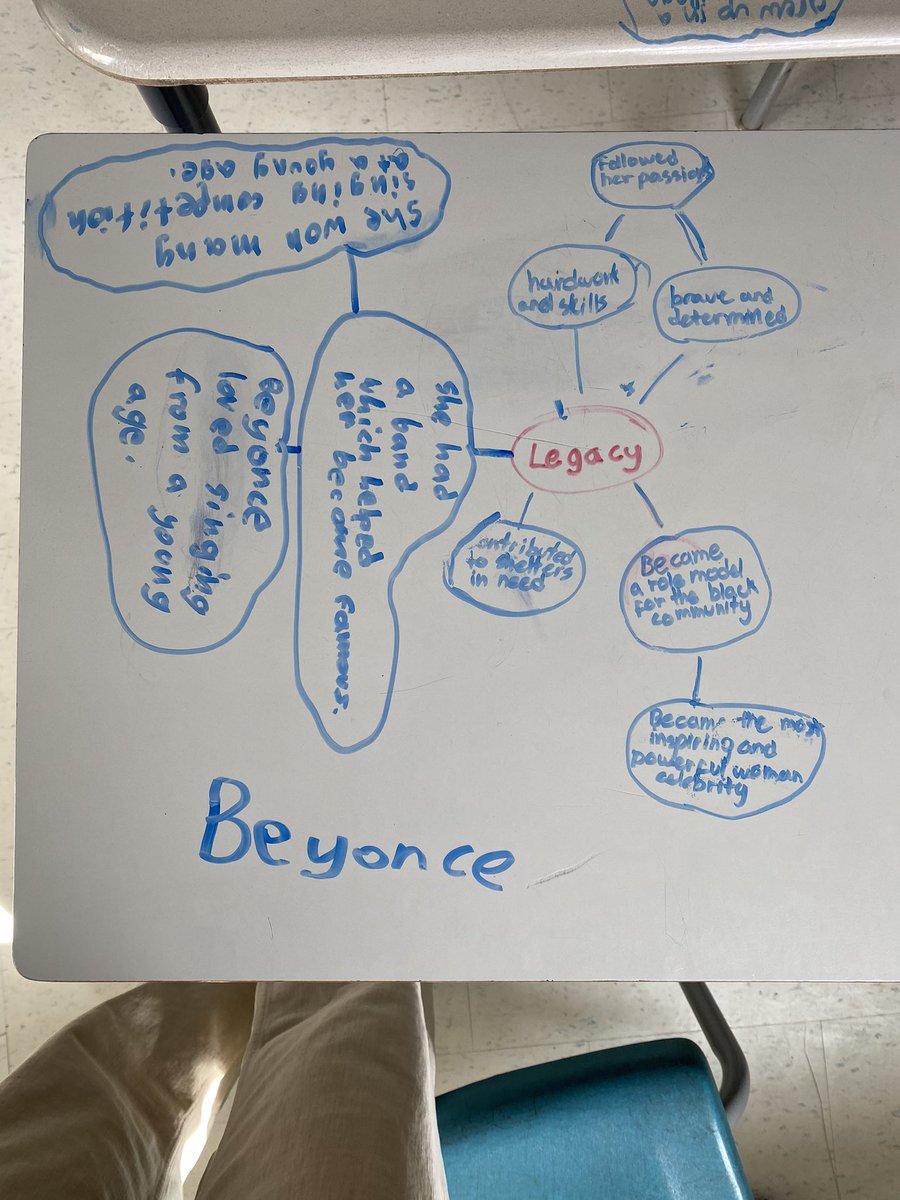 grew up in a
She won many
singing competition
at a young age.
Followed
her passion
hardwork
and skills
brave and
determined
Legacy
she had
a band
which helped
her become famous.
Beyonce
loved singing
from a young
age.
ontributed
to shelters
in need
Became
a role model
for the black
community
Became the most
inspiring and
powerful woman
celebrity
Beyonce